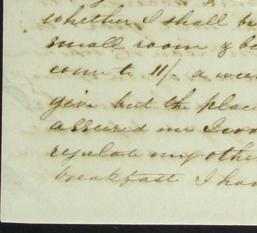 whether I shall be
small room & be
come to 11/- a wee
give but the plac
assured me I wo
regulate my othe
breakfast I hav